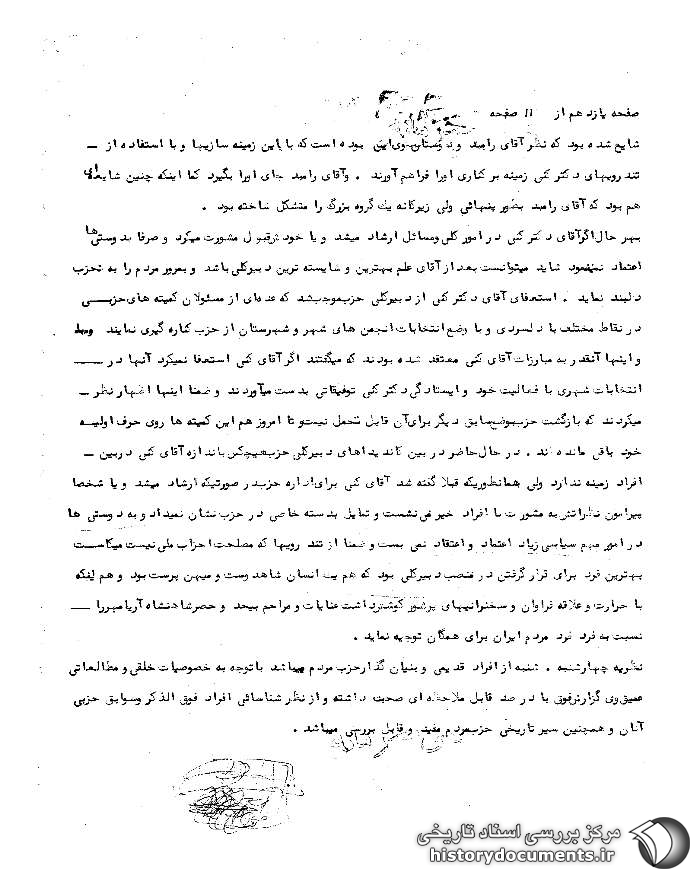 صفحه یازدهم از 11 صفحه
شایع شده بود که نظر آقای رامبد و دوستان وی این بوده است که با این زمینه سازیها و با استفاده از —
تند رویهای دکتر کنی زمینه برکناری اورا فراهم آورند . و آقای رامبد جای اورا بگیرد کما اینکه چنین شایعه
هم بود که آقای رامبد بطور پنهانی ولی زیرکانه یک گروه بزرگ را متشکل ساخته بود .
بهر حال اگر آقای دکتر کنی در امور کلی و مسائل ارشاد میشد و یا خود شرقبول مشورت میکرد و صرفا بدوستیها
اعتماد نمینمود شاید میتوانست بعد از آقای علم بهترین و شایسته ترین دبیرکلی باشد و بمرور مردم را به تحزب
دلبند نماید . استعفای آقای دکتر کنی از دبیرکلی حزب موجب شد که عده ای از مسئولان کمیته های حزبی
در نقاط مختلف با دلسردی و با وضع انتخابات انجمن های شهر و شهرستان از حزب کناره گیری نمایند
و اینها آنقدر به مبارزات آقای کنی معتقد شده بودند که میگفتند اگر آقای کنی استعفا نمیکرد آنها در —
انتخابات شهری با فعالیت خود و ایستادگی دکتر کنی توفیقاتی بدست میآوردند و ضمنا اینها اظهار نظر —
میکردند که بازگشت حزب بوضع سابق دیگر برای آن قابل تحمل نیست و تا امروز هم این کمیته ها روی حرف اولیه
خود باقی مانده اند . در حال حاضر در بین کاندیداهای دبیرکلی حزب هیچکس باندازه آقای کنی در بین —
افراد زمینه ندارد ولی همانطوریکه قبلا گفته شد آقای کنی برای اداره حزب در صورتیکه ارشاد میشد و یا شخصا
پیرامون نظراتش به مشورت با افراد خبر می نشست و تمایل بدسته خاصی در حزب نشان نمیداد و به دوستی ها
در امور مهم سیاسی زیاد اعتماد و اعتقاد نمی بست و ضمنا از تند رویها که مصلحت احزاب ملی نیست میکاست
بهترین فرد برای قرار گرفتن در منصب دبیرکلی بود که هم یک انسان شاهدوست و میهن پرست بود و هم اینکه
با حرارت و علاقه فراوان و سخنرانیهای پرشور کوشش داشت عنایات و مراحم بیحد و حصر شاهنشاه آریامهر را —
نسبت به فرد فرد مردم ایران برای همگان توجیه نماید .
نظریه چهارشنبه . شنبه از افراد قدیمی و بنیان گذار حزب مردم میباشد با توجه به خصوصیات خلقی و مطالعاتی
عمیق وی گزارش فوق با درصد قابل ملاحظه ای صحت داشته و از نظر شناسائی افراد فوق الذکر و سوابق حزبی
آنان و همچنین سیر تاریخی حزب مردم مفید و قابل بررسی میباشد .
مرکز بررسی اسناد تاریخی
historydocuments.ir